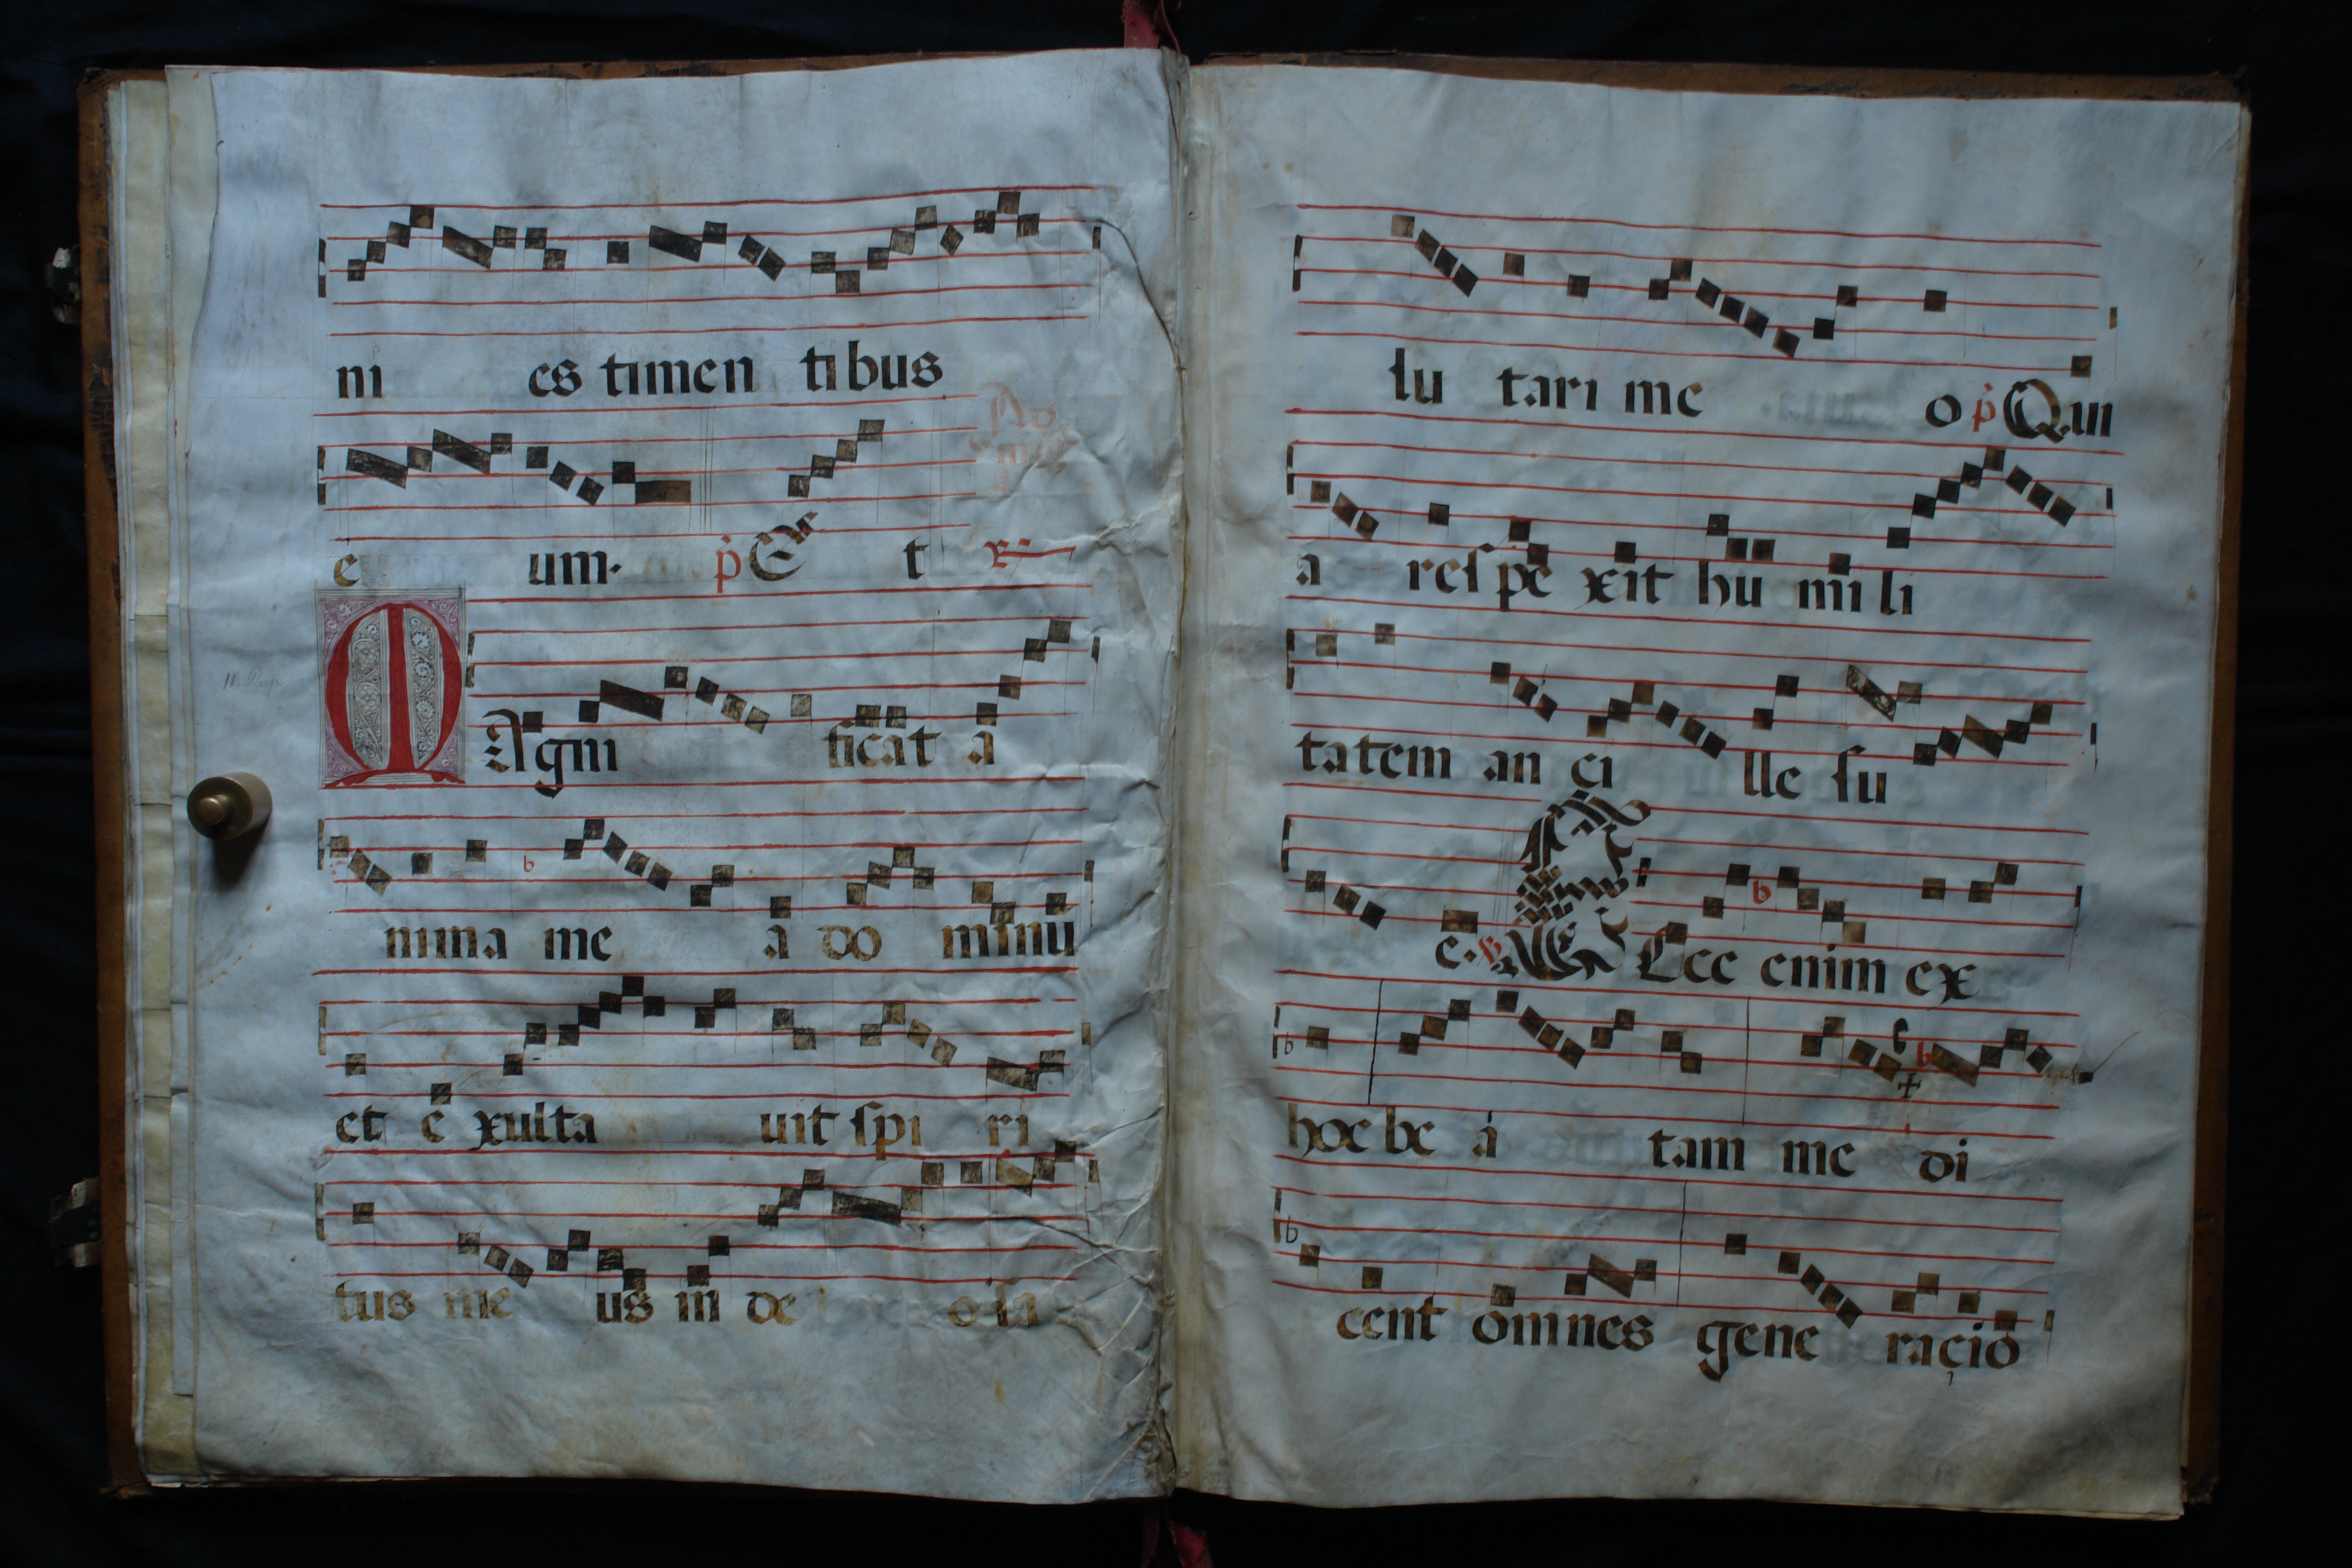 ni es timen tibus
e um. p Et
MAgni ficat a
nima me a do minū
et e xulta uit ſpi ri
tus me us in de o ſa
lu tari me o p Qui
a reſ pe xit hu mi li
tatem an ci lle ſu
e. Ecce enim ex
hoc be a tam me di
cent omnes gene racio